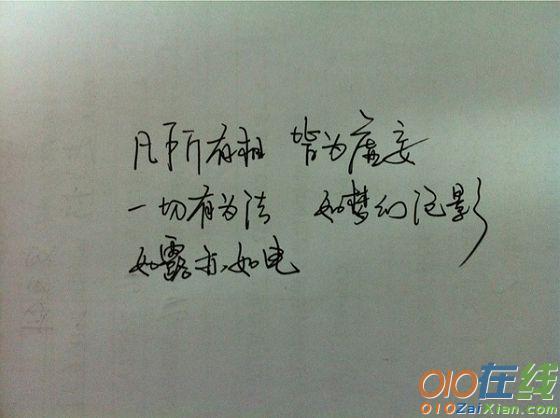 凡所有相 皆为虚妄
一切有为法 如梦幻泡影
如露亦如电
010在线
010ZaiXian.com